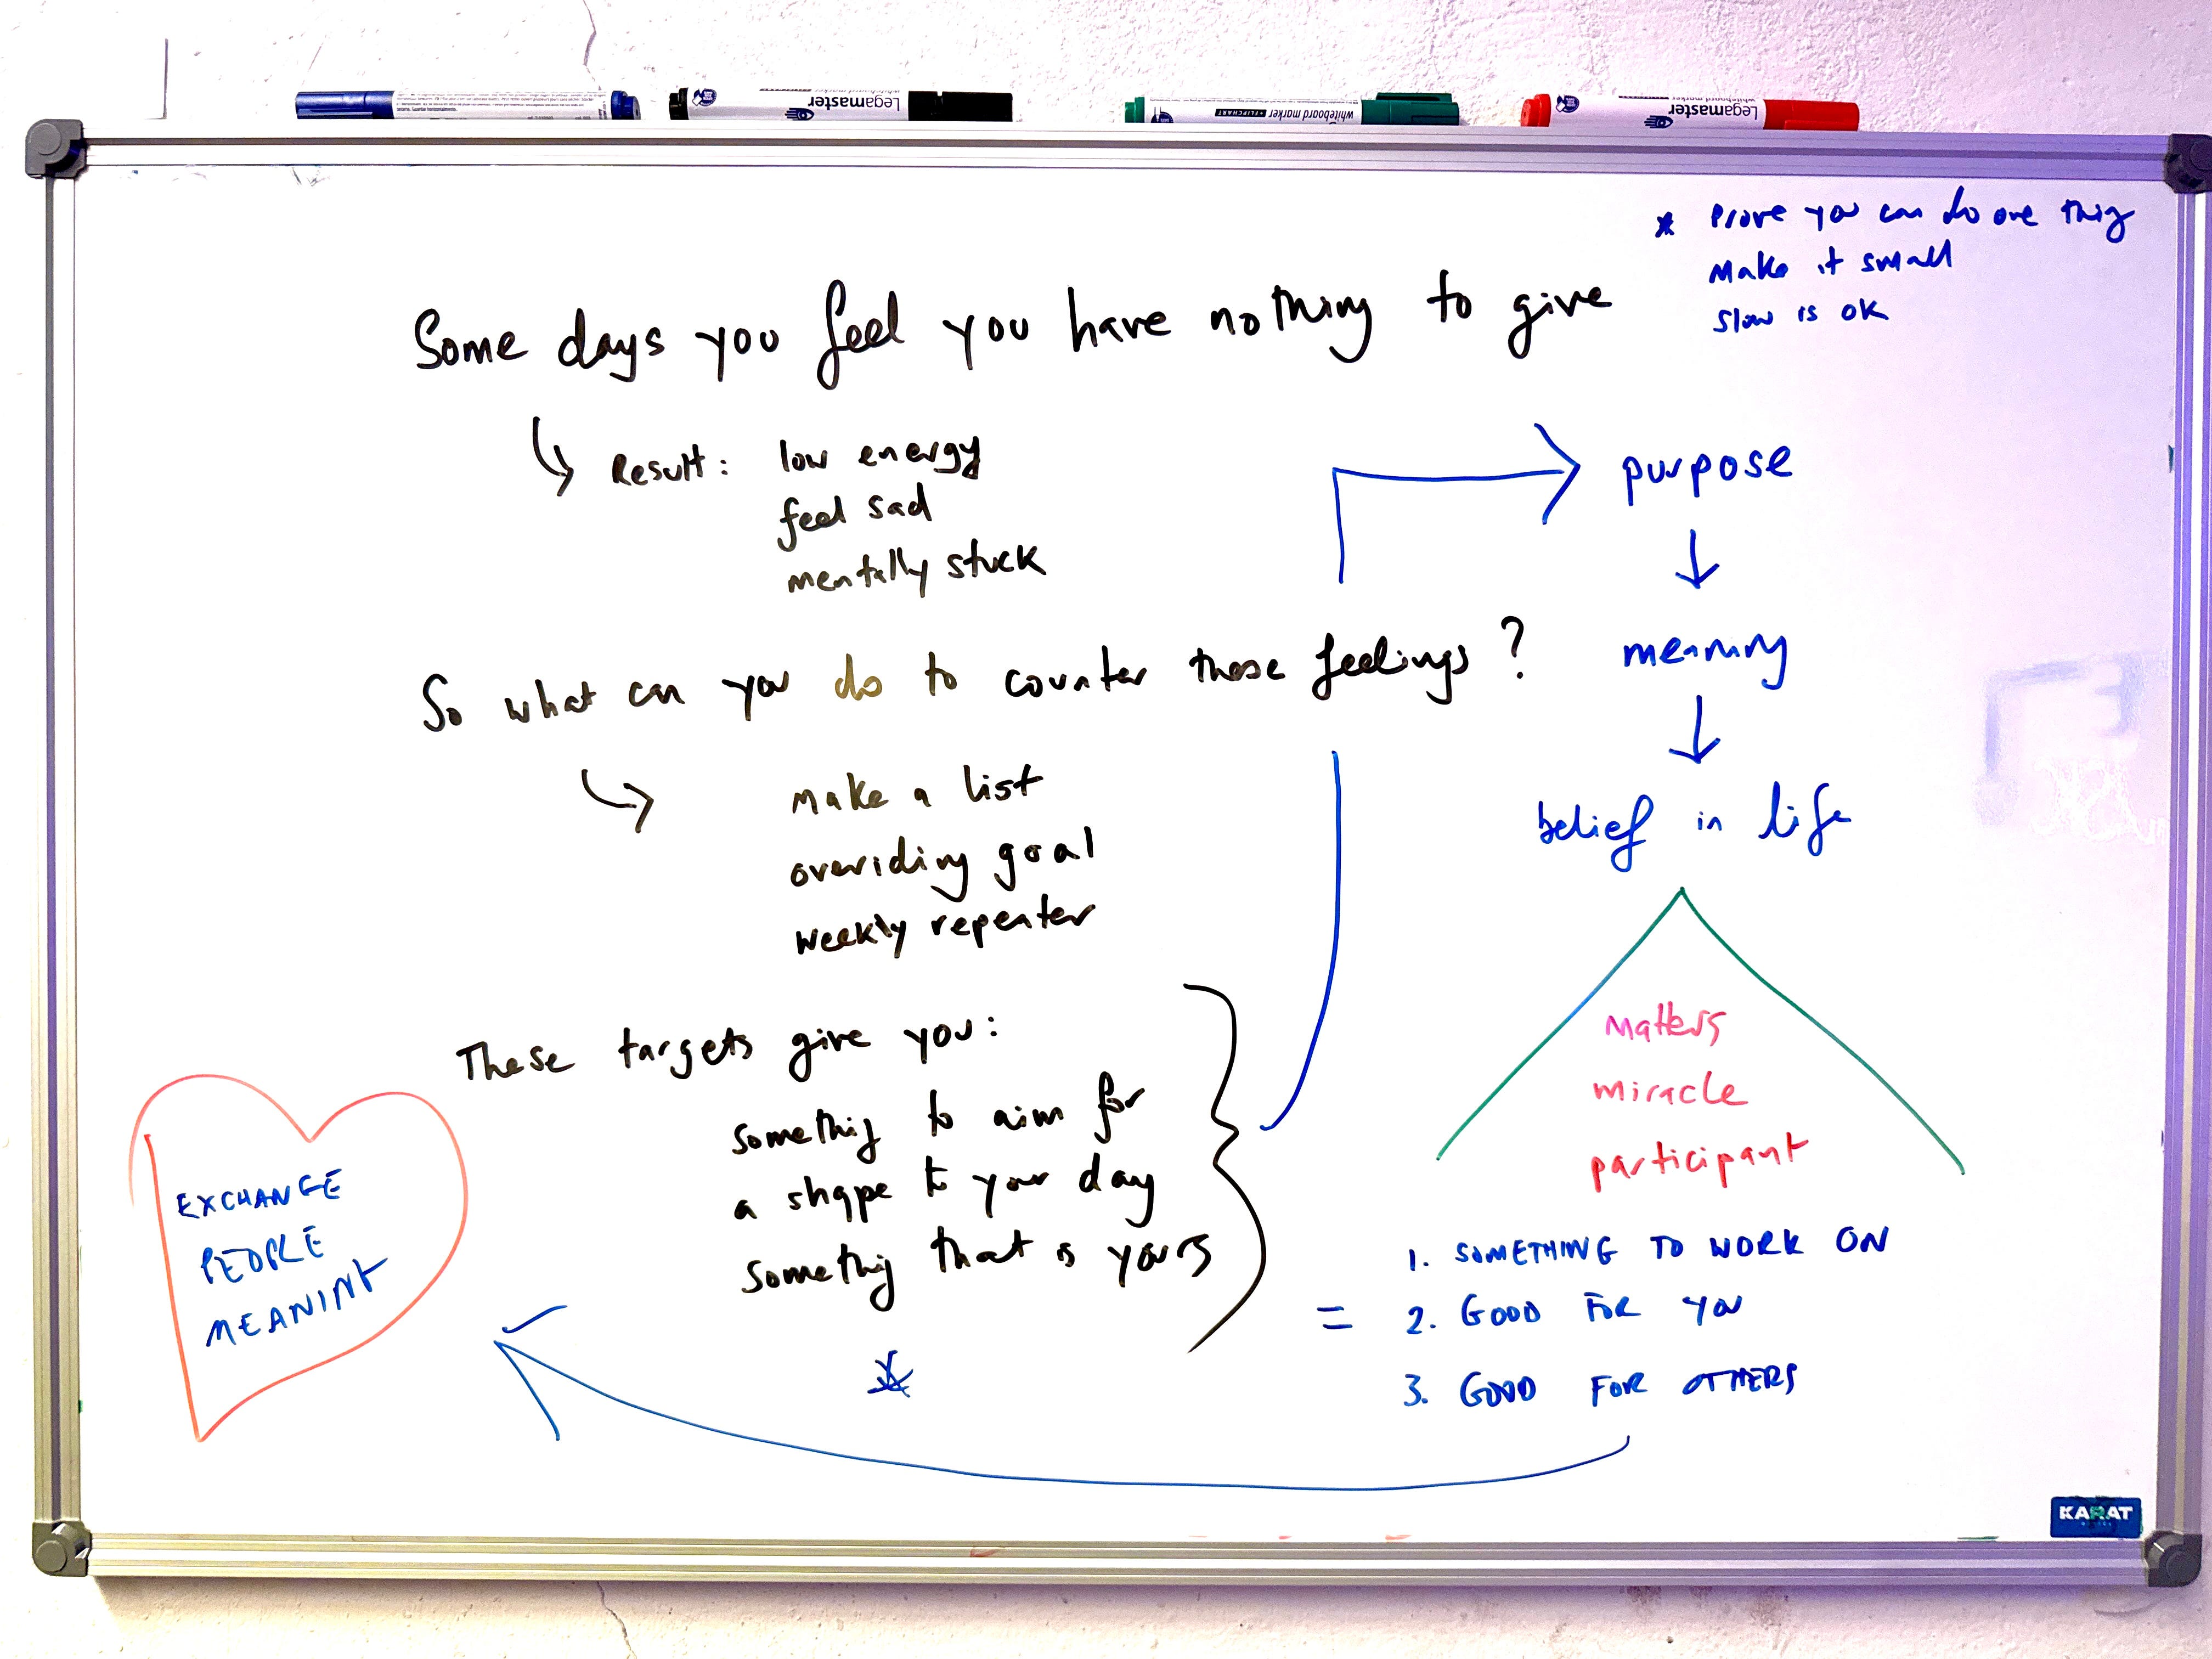 Legamaster
whiteboard marker
whiteboard marker + FLIPCHART
Legamaster
whiteboard marker
* Prove you can do one thing
Make it small
Slow is OK
Some days you feel you have nothing to give
Result: low energy
feel sad
mentally stuck
purpose
meaning
belief in life
So what can you do to counter those feelings?
make a list
overiding goal
weekly repeater
These targets give you:
something to aim for
a shape to your day
something that is yours
*
matters
miracle
participant
= 1. SOMETHING TO WORK ON
2. GOOD FOR YOU
3. GOOD FOR OTHERS
EXCHANGE
PEOPLE
MEANING
KARAT